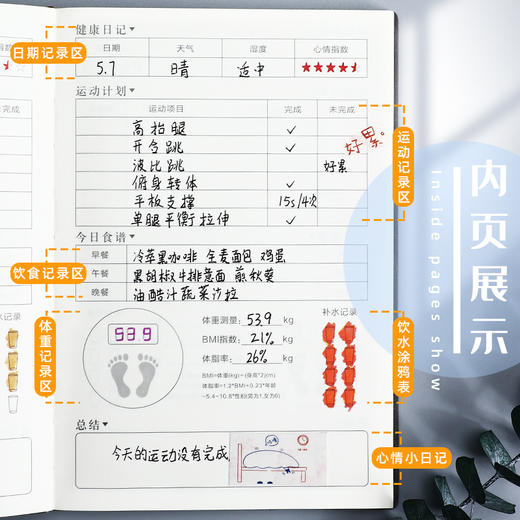 健康日记▼
日期 天气 湿度 心情指数
5.7 晴 适中
日期记录区
运动计划▼
运动项目 完成 未完成
高抬腿 ✓
开合跳 ✓
好累。
波比跳 好累
俯身转体 ✓
平板支撑 15s/4次
单腿平衡拉伸 ✓
运动记录区
今日食谱▼
早餐 冷萃黑咖啡 全麦面包 鸡蛋
午餐 黑胡椒牛排意面 煎秋葵
晚餐 油醋汁蔬菜沙拉
饮食记录区
体重记录区
539
体重测量: 53.9 kg
BMI指数: 21% kg
体脂率: 26% kg
BMI=体重(kg)÷(身高^2)(m)
体脂率=1.2*BMI+0.23*年龄
-5.4-10.8*性别(男为1,女为0)
补水记录
饮水涂鸦表
总结▼
今天的运动没有完成
心情小日记
内页展示
Inside pages show
完成
水记录